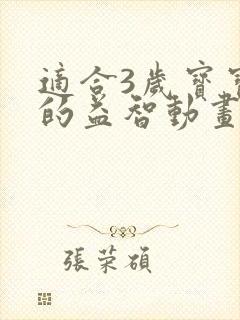 適合3歲寶寶
的益智動畫
張荣碩